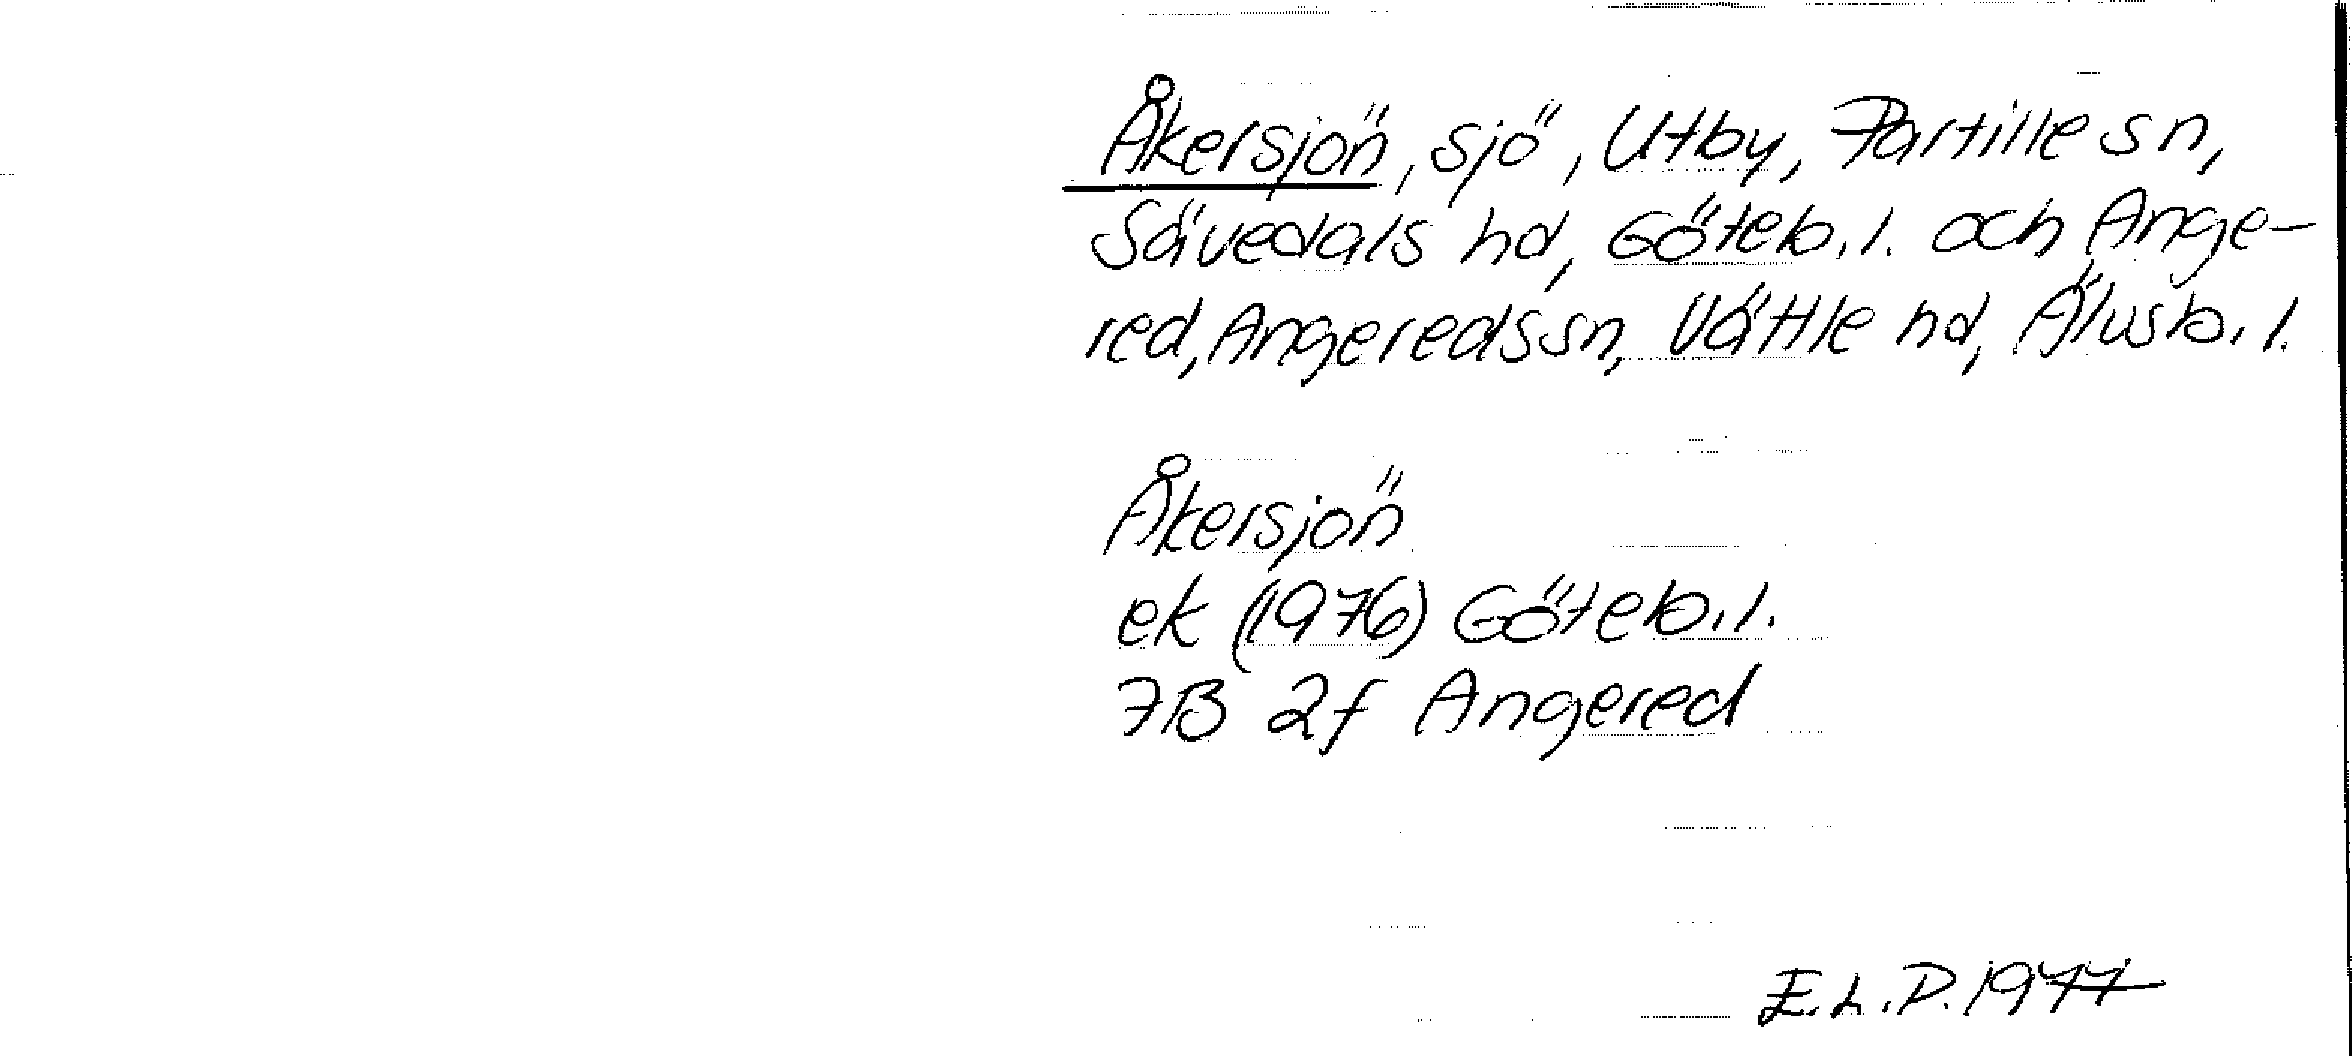 Åkersjön, sjö, Utby, Partille sn,
Sävedals hd, Göteb. l. och Ange-
red, Angereds sn, Vättle hd, Älvsb. l.
Åkersjön
ek (1976) Göteb. l.
7B 2f Angered
E.L.P. 1977